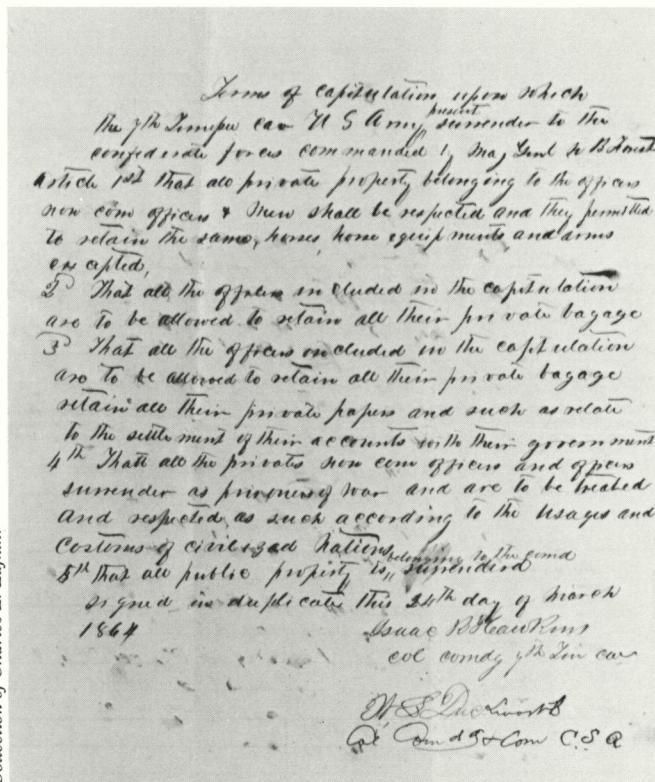 Terms of capitulation upon which
the 7th Tennessee cav U S Army present surrender to the
confederate forces commanded by Maj Genl N B Forest
Article 1st that all private property belonging to the officers
non com officers & men shall be respected and they permitted
to retain the same, horses, horse equipments and arms
excepted,
2 That all the officers included in the capitulation
are to be allowed to retain all their private bagage
3 That all the officers included in the capitulation
are to be allowed to retain all their private bagage
retain all their private papers and such as relate
to the settlement of their accounts with their government
4th Thatt all the privates non com officers and officers
surrender as prisoners of war and are to be treated
and respected as such according to the usages and
Customs of civilized Nations
5th that all public property belonging to the comd is surrenderd
signed in duplicate this 24th day of March
1864
Isaac R Hawkins
col comdg 7th Tin cav
W. L. Duckworth
Col Comdg C. S. A
Collection of Charles L.